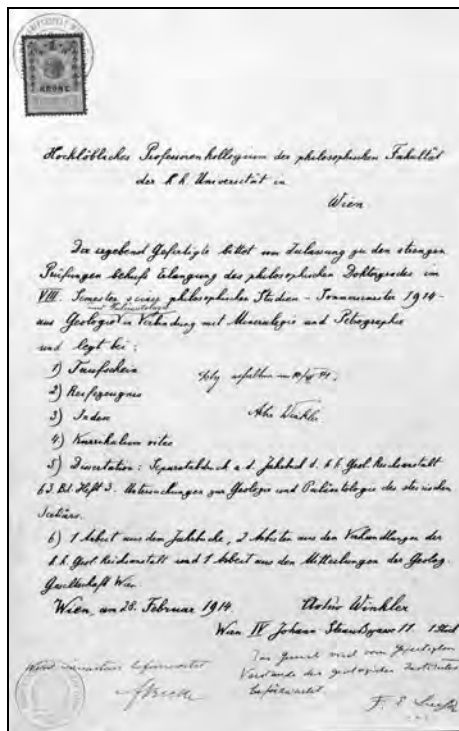 1
KRONE
Hochlöbliches Professorenkollegium der philosophischen Fakultät
der k. k. Universität in
Wien
Der ergebend Gefertigte bittet um Zulassung zu den strengen
Prüfungen behufs Erlangung des philosophischen Doktorgrades im
VIII. Semester seiner philosophischen Studien - Sommersemester 1914 -
und Paläontologie
aus Geologie in Verbindung mit Mineralogie und Petrographie
und legt bei:
1) Taufschein
2) Reifezeugnis
3) Index
4) Kurrikulum vitae
Artur Winkler
5) Dissertation: Separatabdruck a. d. Jahrbuch d. k. k. Geol. Reichsanstalt
63. Bd. Heft 3. Untersuchungen zur Geologie und Paläontologie des steirischen
Tertiärs.
6) 1 Arbeit aus dem Jahrbuche, 2 Arbeiten aus den Verhandlungen der
k. k. Geol. Reichsanstalt und 1 Arbeit aus den Mitteilungen der Geolog.
Gesellschaft Wien.
Wien, am 28. Februar 1914.
Artur Winkler
Wien IV Johann Straußgasse 11.
Das Gesuch wird vom gefertigten
Vorstande des geologischen Institutes
befürwortet.
F. E. Suess
wird wärmstens befürwortet
FBecke